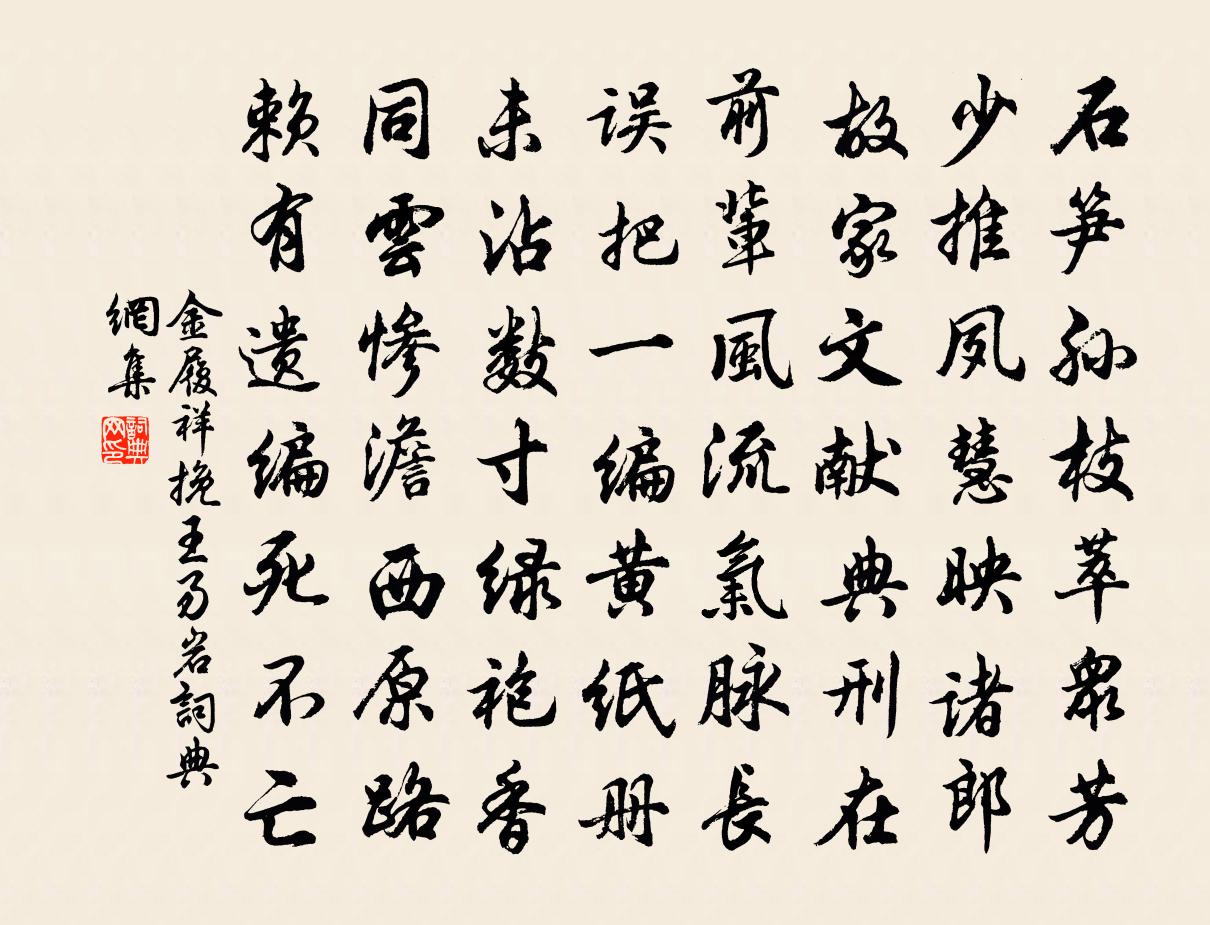 石笋孙枝萃衆芳
少推夙慧映诸郎
故家文献典刑在
前輩風流氣脉長
误把一编黄纸册
未沾数寸绿袍香
同雲惨澹西原路
赖有遗编死不亡
金履祥挽王易岩詞典
網集
詞典
网印